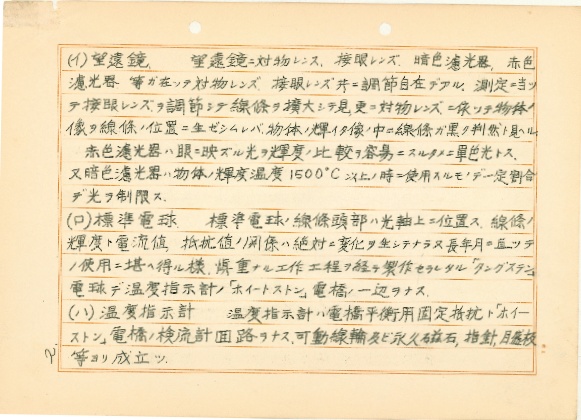 (イ)望遠鏡 望遠鏡ニ対物レンズ、接眼レンズ、暗色濾光器、赤色
濾光器 等ガ在ッテ対物レンズ、接眼レンズ共ニ調節自在デアル、測定ニ当ッ
テ接眼レンズヲ調節シテ線條ヲ擴大シテ見更ニ対物レンズニ依ッテ物体ノ
像ヲ線條ノ位置ニ生ゼシムレバ、物体ノ輝イタ像ノ中ニ線條ガ黒ク判然ト見ヘル、
赤色濾光器ハ眼ニ映ズル光ヲ輝度ノ比較ヲ容易ニスルタメニ單色光トス、
又暗色濾光器ハ物体ノ輝度温度1500°C以上ノ時ニ使用スルモノデ一定割合
デ光ヲ制限ス、
(ロ)標準電球 標準電球ノ線條頭部ハ光軸上ニ位置ス、線條ノ
輝度ト電流値、抵抗値ノ関係ハ絶対ニ変化ヲ生シナラヌ又長年月ニ亘ッテ
ノ使用ニ堪ヘ得ル様、慎重ナル工作工程ヲ経テ製作セラレタル「タングステン」
電球デ温度指示計ノ「ホイートストン」電橋ノ一辺ヲナス、
(ハ)温度指示計 温度指示計ハ電橋平衡用固定抵抗ト「ホイー
ストン」電橋ノ検流計回路ヲナス、可動線輪及ビ永久磁石、指針、目盛板
等ヨリ成立ツ、
2.